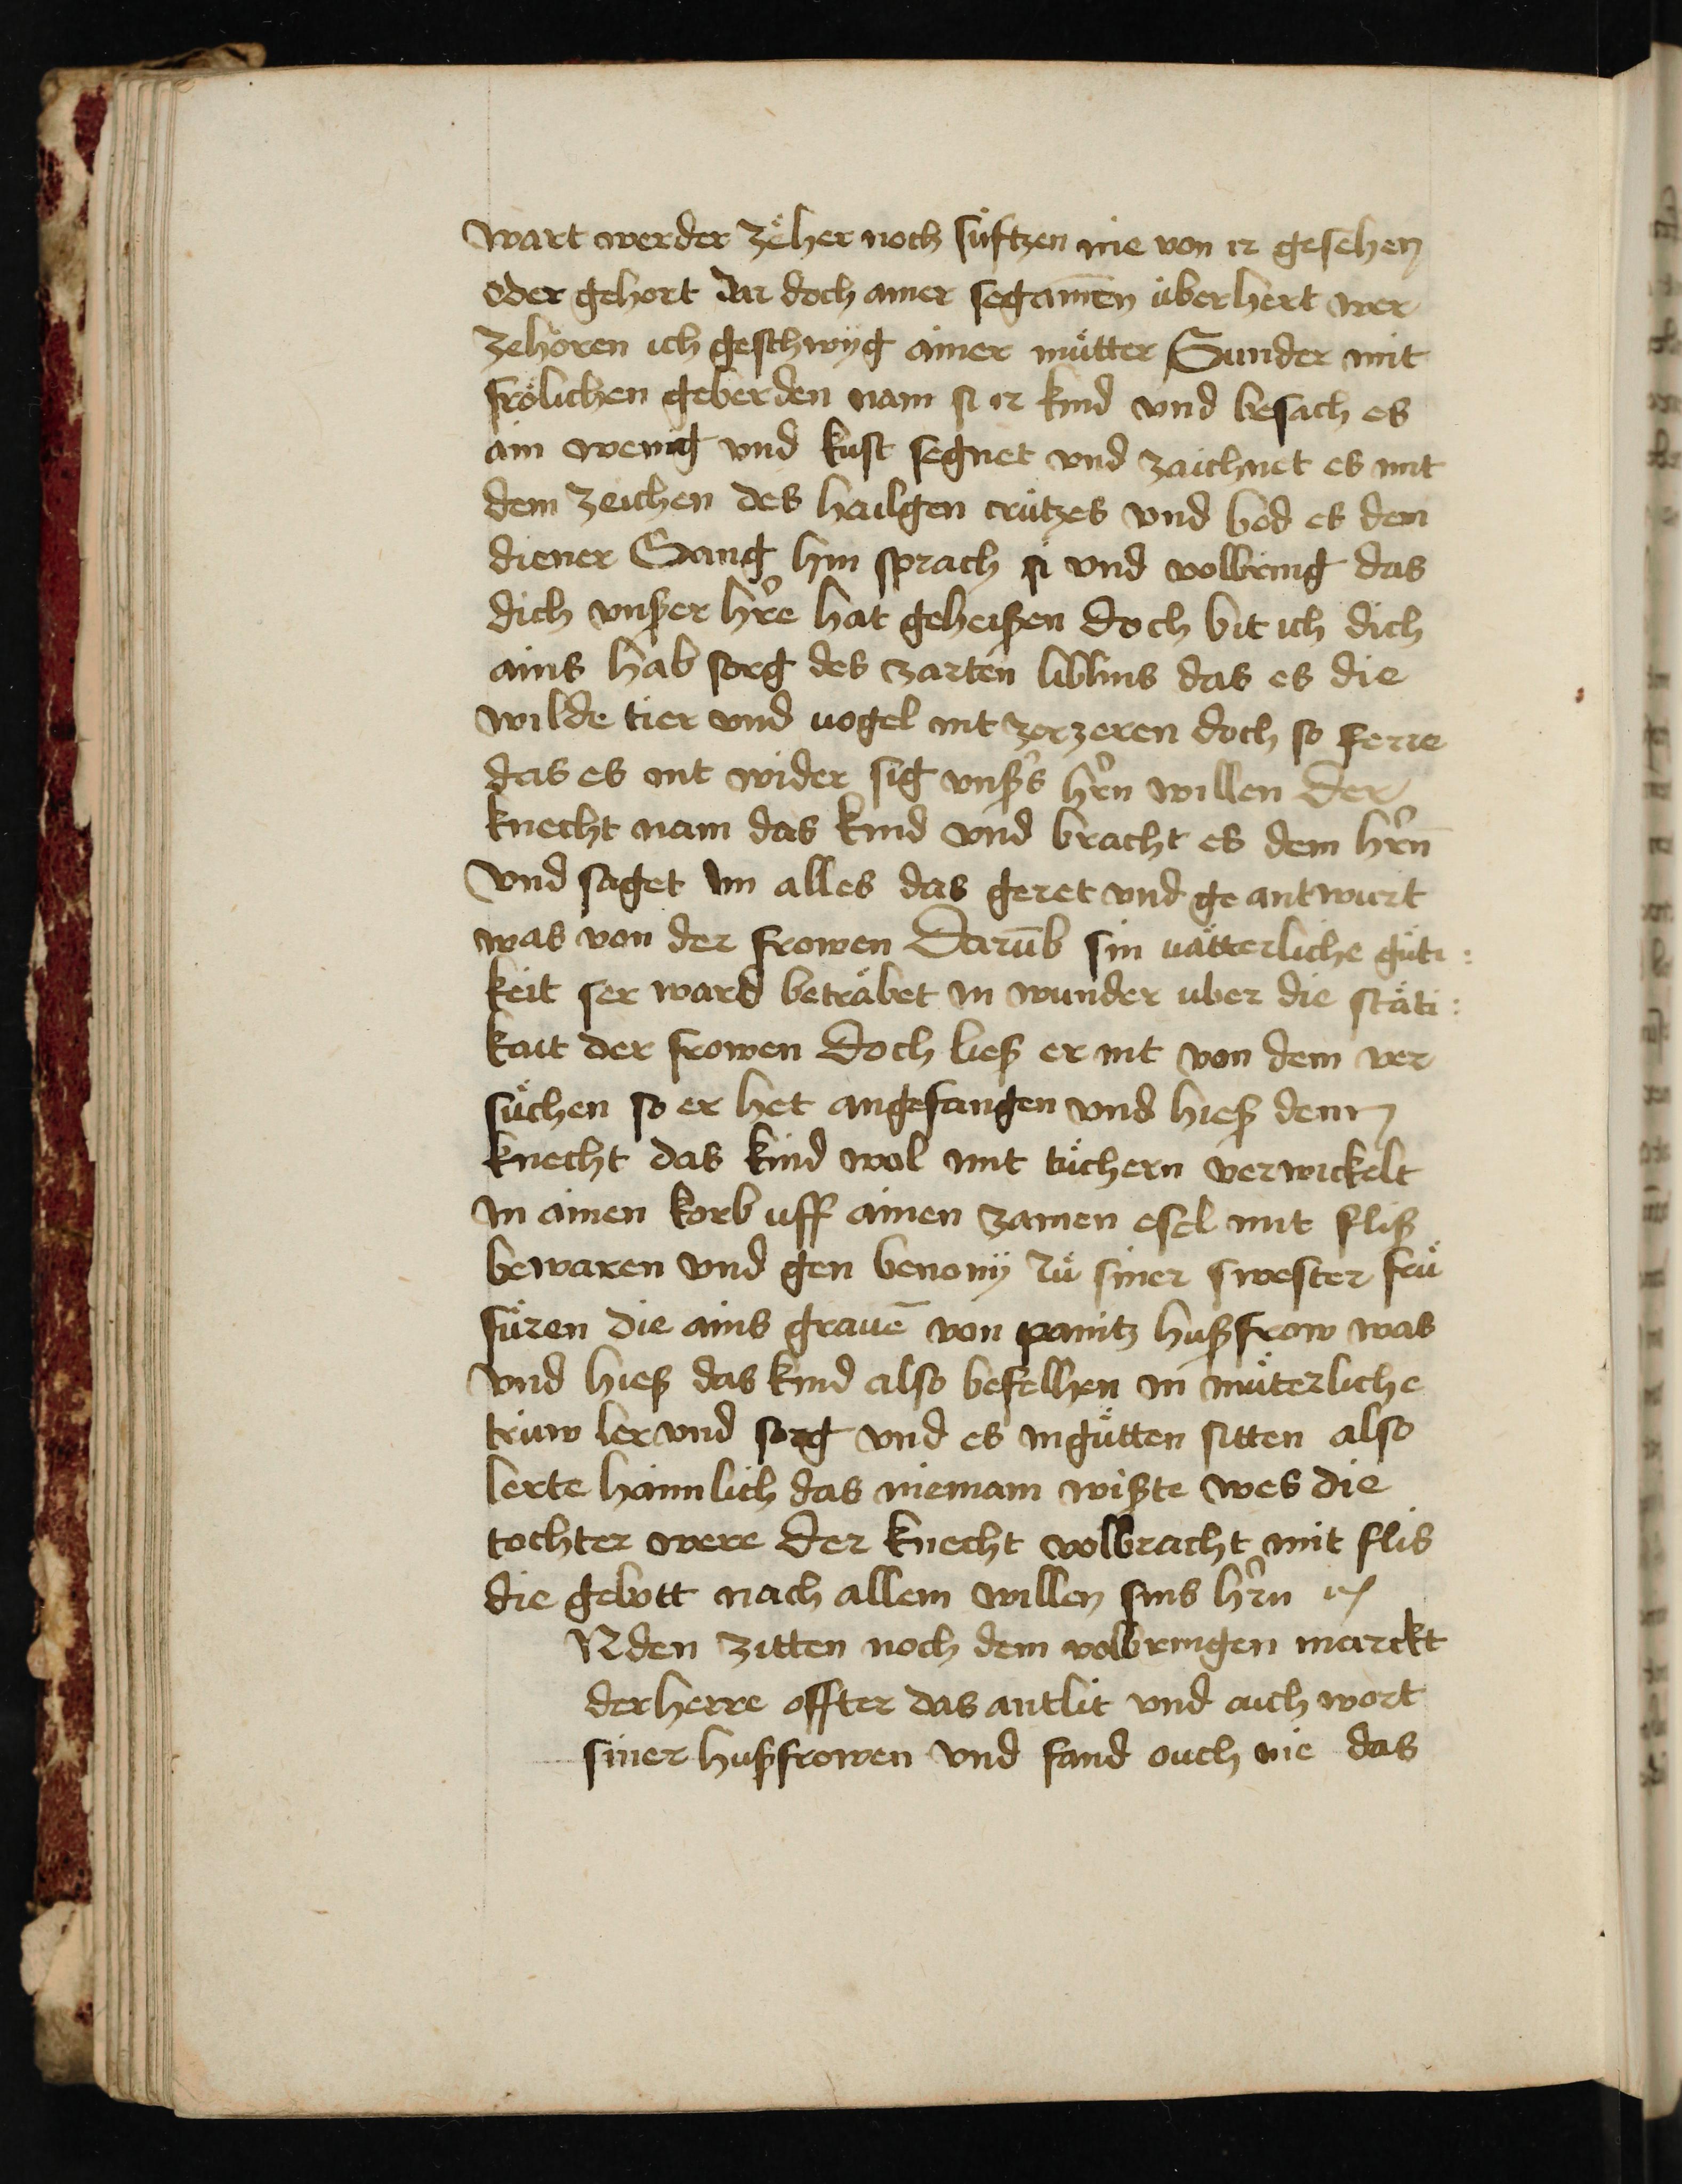 wart werder zeͤher noch suͤftzen nie von ir gesehen
oder gehort dar doch ainer segam̄en uͤberhert wer
zehoͤren ich geschwÿg ainer muͤtter Sunder mit
froͤlichen geberden nam si ir kind vnd besach es
ain wenig vnd kust segnet vnd zaichnet es mit
dem zeichen des hailgen crützes vnd bod es dem
diener Gang hin sprach si vnd volbring das
dich vnßer hr̄e hat geheißen doch bit ich dich
ains hab sorg des zarten liblins das es die
wilde tier vnd uogel nit zerzeren doch so ferre
das es nit wider sig vnßs hr̄n willen Der
knecht nam das kind vnd bracht es dem hr̄n
Vnd saget im alles das geret vnd ge antwurt
was von der frowen Darūb sin uaͤtterliche guͤti:
keit ser ward betraͤbet in wunder uber die staͤti:
kait der frowen Doch ließ er nit von dem ver
suͤchen so er het angefangen vnd hieß denn
knecht das kind wol mit tuͤchern verwickelt
In ainen korb uff ainen zamen esel mit fliß
bewaren vnd gen benonÿ zuͤ siner swester fruͤ
fuͤren die ains grauē von panitz hußfrow was
Vnd hieß das kind also befelhen in muͤterliche
truw ler vnd sorg vnd es in guͤtten sitten also
lerte haimlich das niemam wißte wes die
tochter were Der knecht volbracht mit flis
die gebott nach allem willen sins hr̄n
N den zitten noch dem volbringen marckt
der herre offter das antlit vnd auch wort
siner hußfrowen vnd fand ouch nie das